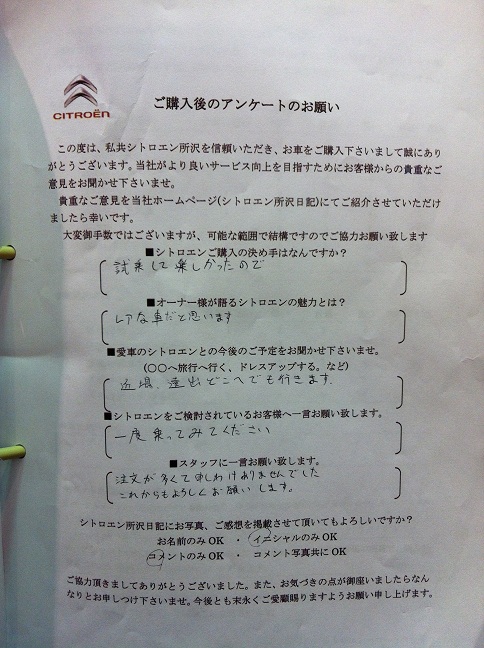 CITROËN
ご購入後のアンケートのお願い
この度は、私共シトロエン所沢を信頼いただき、お車をご購入下さいまして誠にあり
がとうございます。当社がより良いサービス向上を目指すためにお客様からの貴重なご
意見をお聞かせ下さいませ。
貴重なご意見を当社ホームページ(シトロエン所沢日記)にてご紹介させていただけ
ましたら幸いです。
大変御手数ではございますが、可能な範囲で結構ですのでご協力お願い致します
■シトロエンご購入の決め手はなんですか?
試乗して楽しかったので
■オーナー様が語るシトロエンの魅力とは?
レアな車だと思います
■愛車のシトロエンとの今後のご予定をお聞かせ下さいませ。
(〇〇へ旅行へ行く、ドレスアップする。など)
近場、遠出どこへでも行きます.
■シトロエンをご検討されているお客様へ一言お願い致します。
一度乗ってみてください
■スタッフに一言お願い致します。
注文が多くて申しわけありませんでした
これからもよろしくお願いします。
シトロエン所沢日記にお写真、ご感想を掲載させて頂いてもよろしいですか?
お名前のみOK ・ イニシャルのみOK
コメントのみOK ・ コメント写真共にOK
ご協力頂きましてありがとうございました。また、お気づきの点が御座いましたらなん
なりとお申しつけ下さいませ。今後とも末永くご愛顧賜りますようお願い申し上げます。